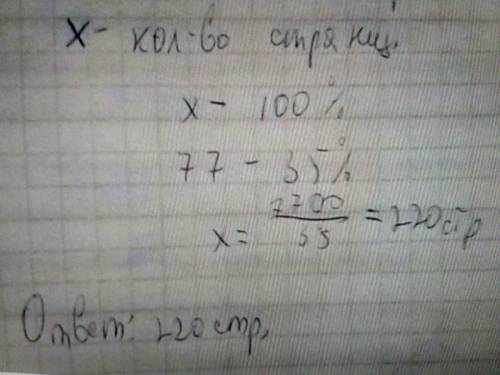 x - кол-во страниц.
x - 100%
77 - 35%
x = 7700/35 = 220 стр
Ответ: 220 стр,